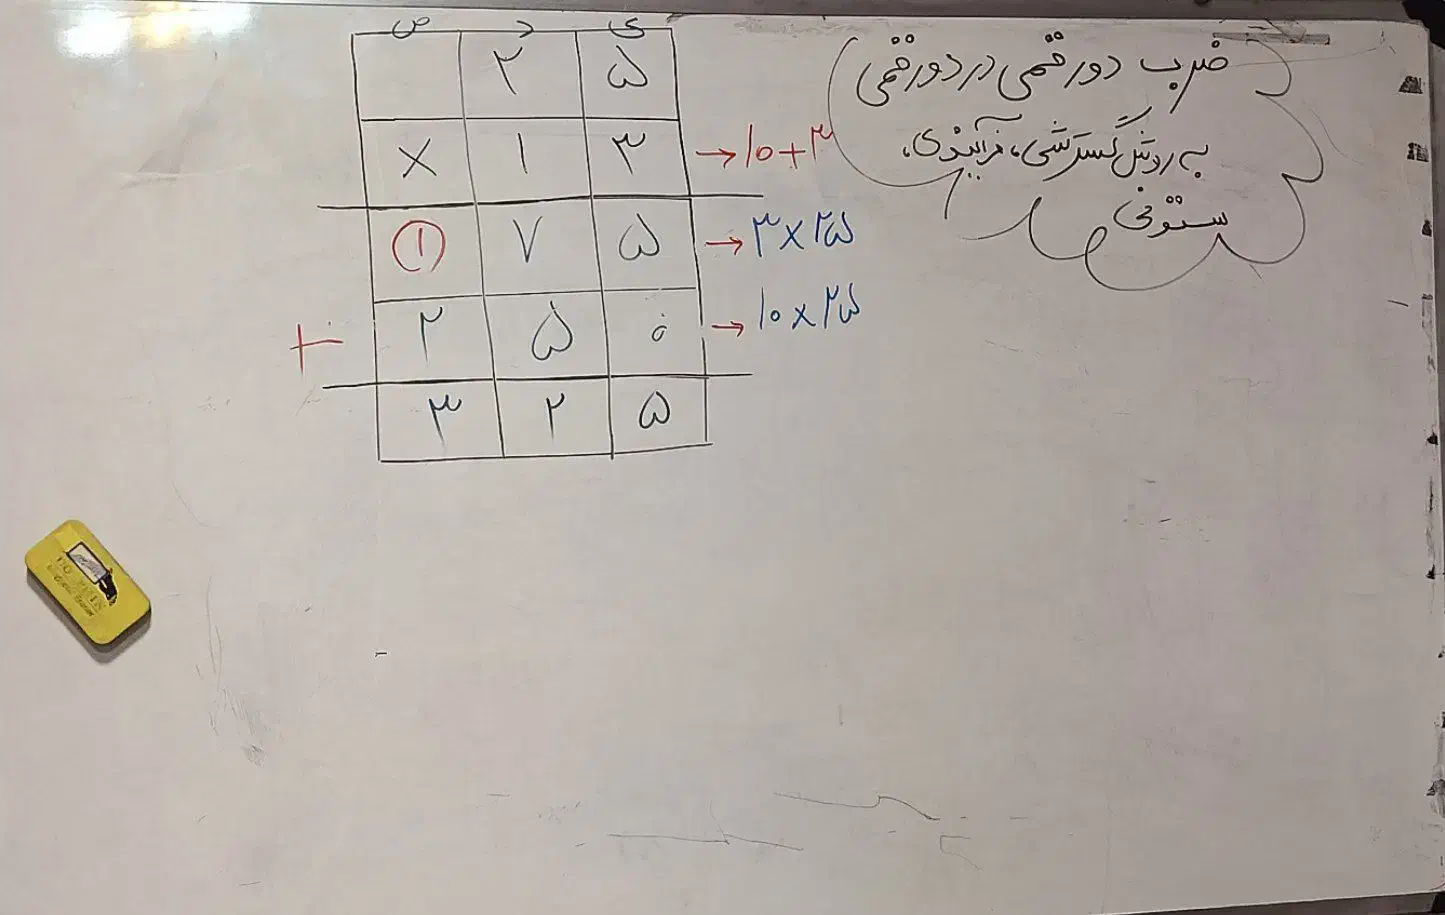 ضرب دو رقمی در دو رقمی
به روش گسترشی، فرآیندی،
ستونی
ص د ی
۲ ۵
× ۱ ۳ → ۱۰+۳
۱ ۷ ۵ → ۳×۲۵
+ ۲ ۵ ۰ → ۱۰×۲۵
۳ ۲ ۵